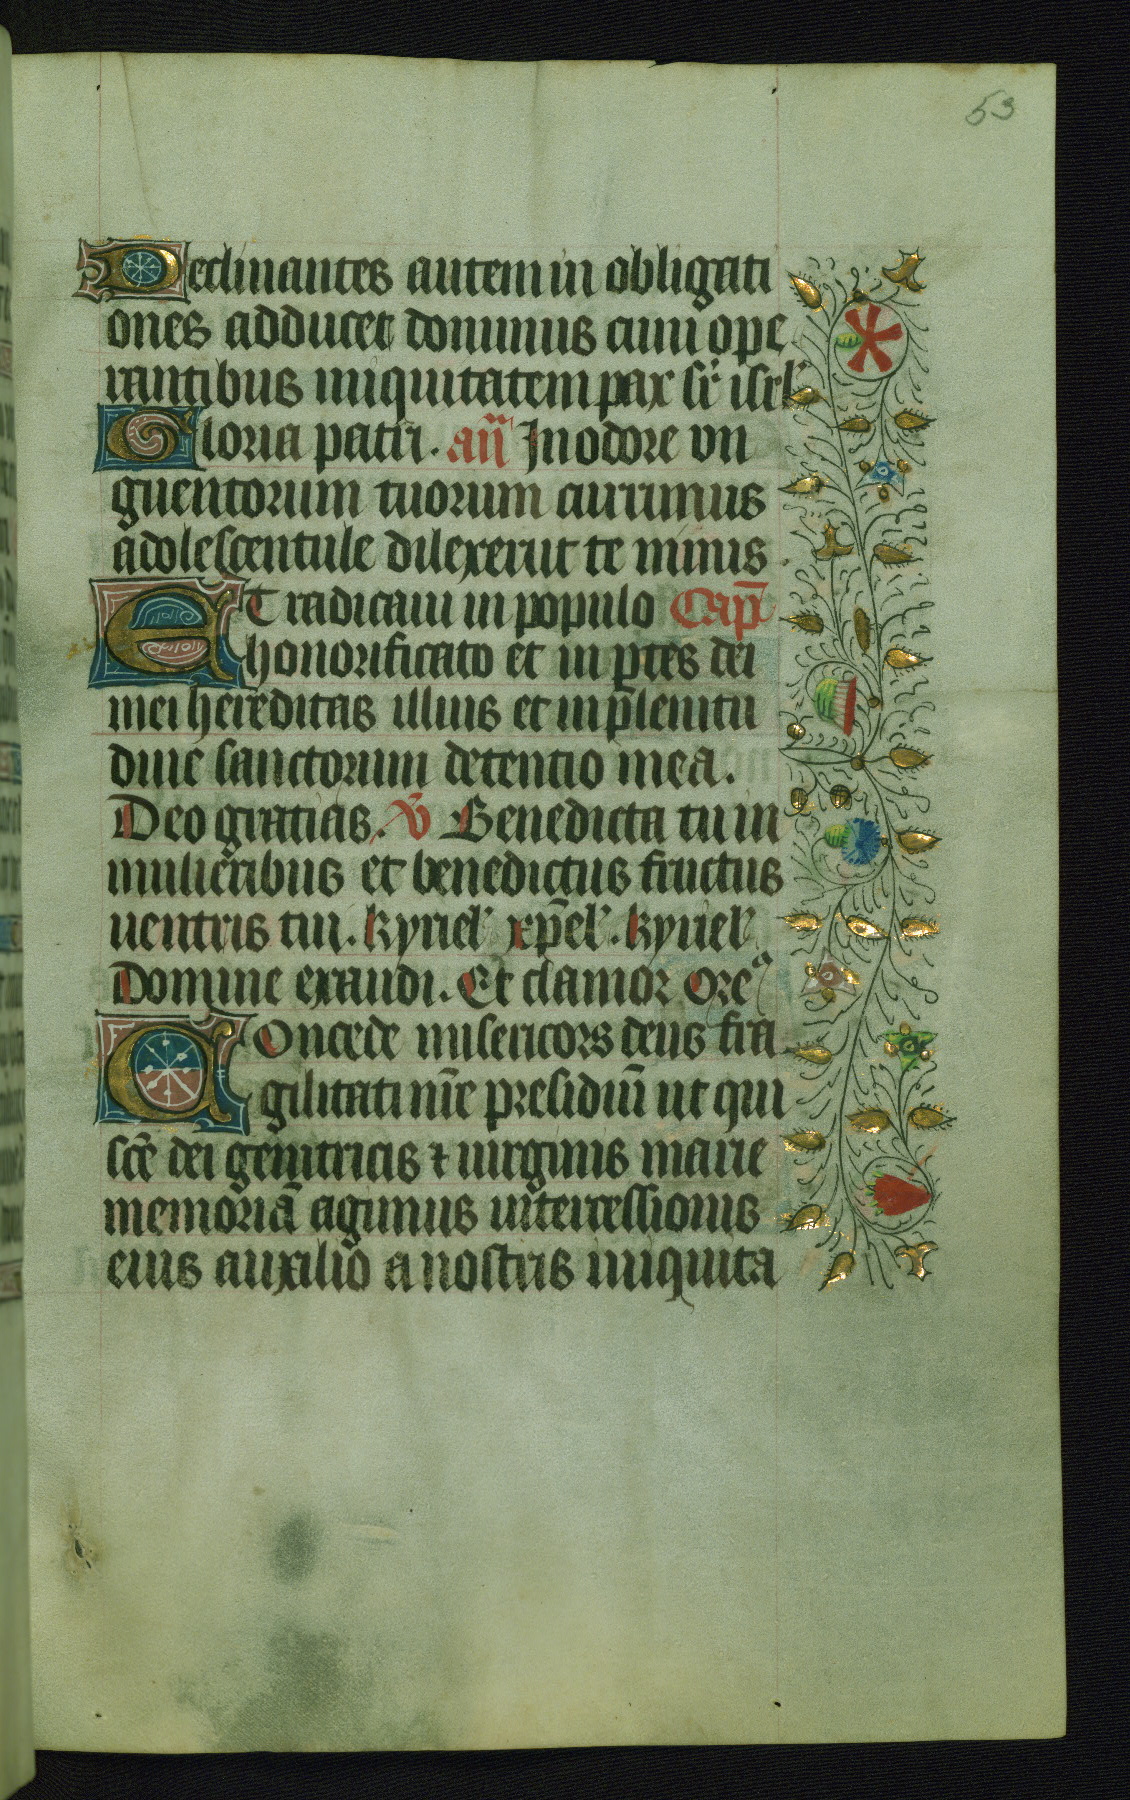 53
Declinantes autem in obligati
ones adducet dominus cum ope
rantibus iniquitatem pax sr̄ isrl'
Gloria patri. an̄ In odore vn
guentorum tuorum currimus
adolescentule dilexerūt te nimis.
Et radicaui in populo Cap̄
honorificato et in ꝑtes dei
mei hereditas illius et in plenitu
dine sanctorum detentio mea.
Deo gratias. V̄ Benedicta tu in
mulieribus et benedictus fructus
uentris tui. kyriel' xp̄el'. kyriel'
Domine exaudi. Et clamor Ore
Concede misericors deus fra
gilitati nr̄e presidiū ut qui
sc̄e dei genitricis ⁊ uirginis marie
memoriā agimus intercessionis
eius auxilio a nostris iniquita